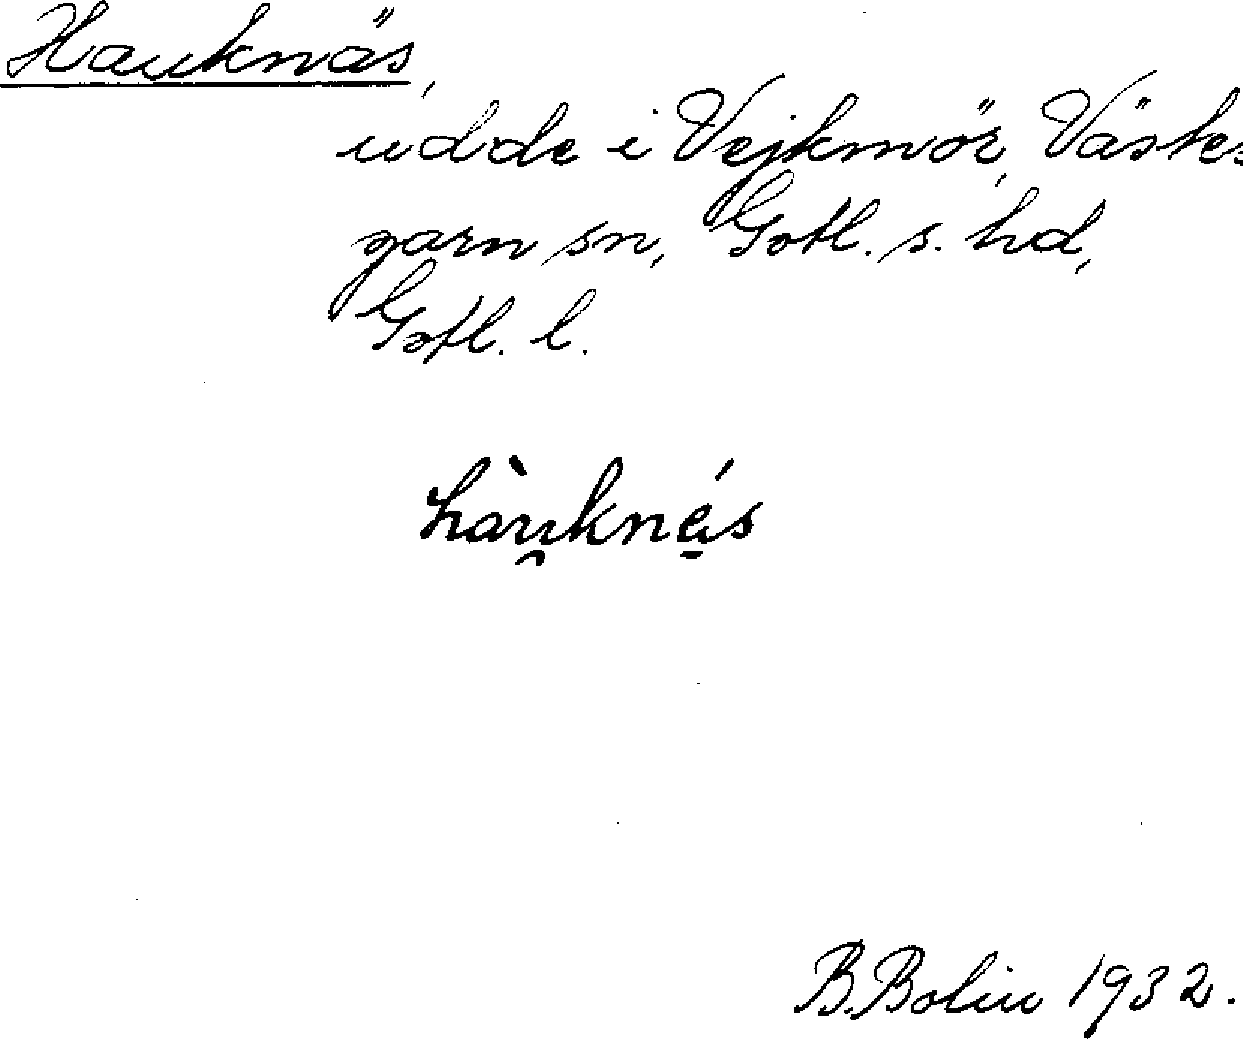 Hauknäs,
udde i Vejkmör, Väste-
garn sn, Gotl. s. hd,
Gotl. l.
hàu̯kné̱s
B. Bolin 1932.